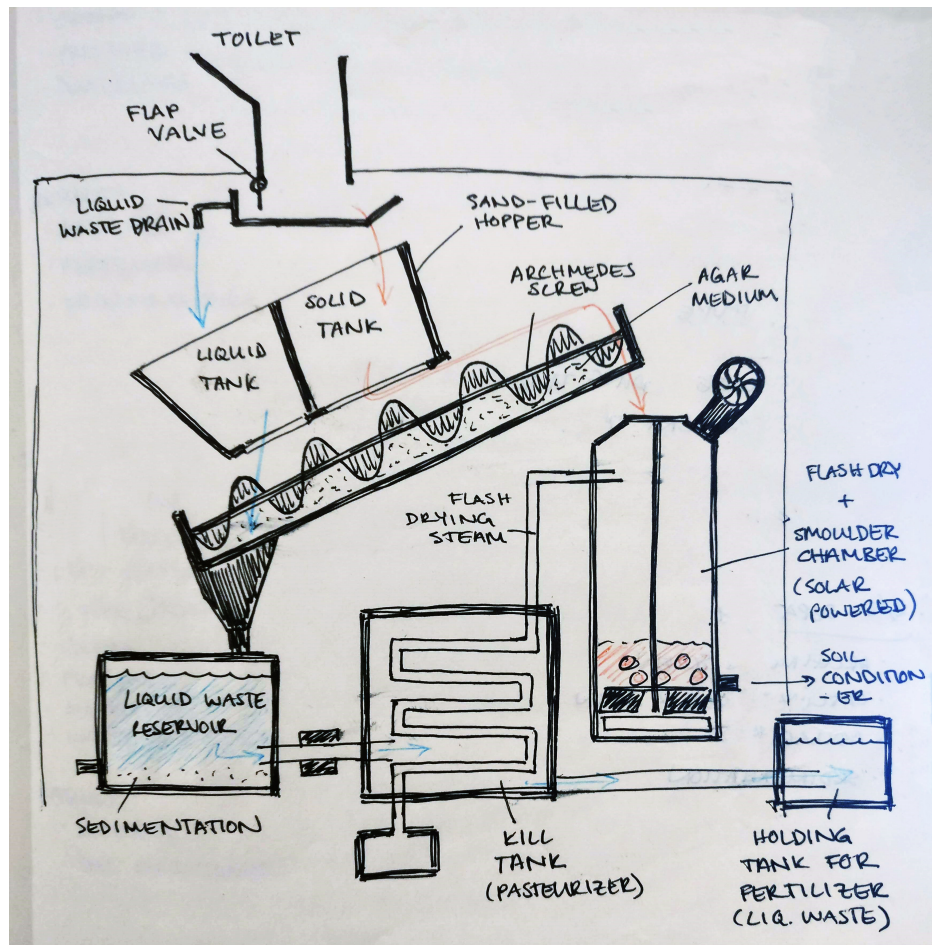 TOILET
FLAP
VALVE
LIQUID
WASTE DRAIN
SAND-FILLED
HOPPER
ARCHMEDES
SCREN
AGAR
MEDIUM
SOLID
TANK
LIQUID
TANK
FLASH
DRYING
STEAM
FLASH DRY
+
SMOULDER
CHAMBER
(SOLAR
POWERED)
SOIL
CONDITION
-ER
LIQUID WASTE
RESERVOIR
SEDIMENTATION
KILL
TANK
(PASTEURIZER)
HOLDING
TANK FOR
FERTILIZER
(LIQ. WASTE)